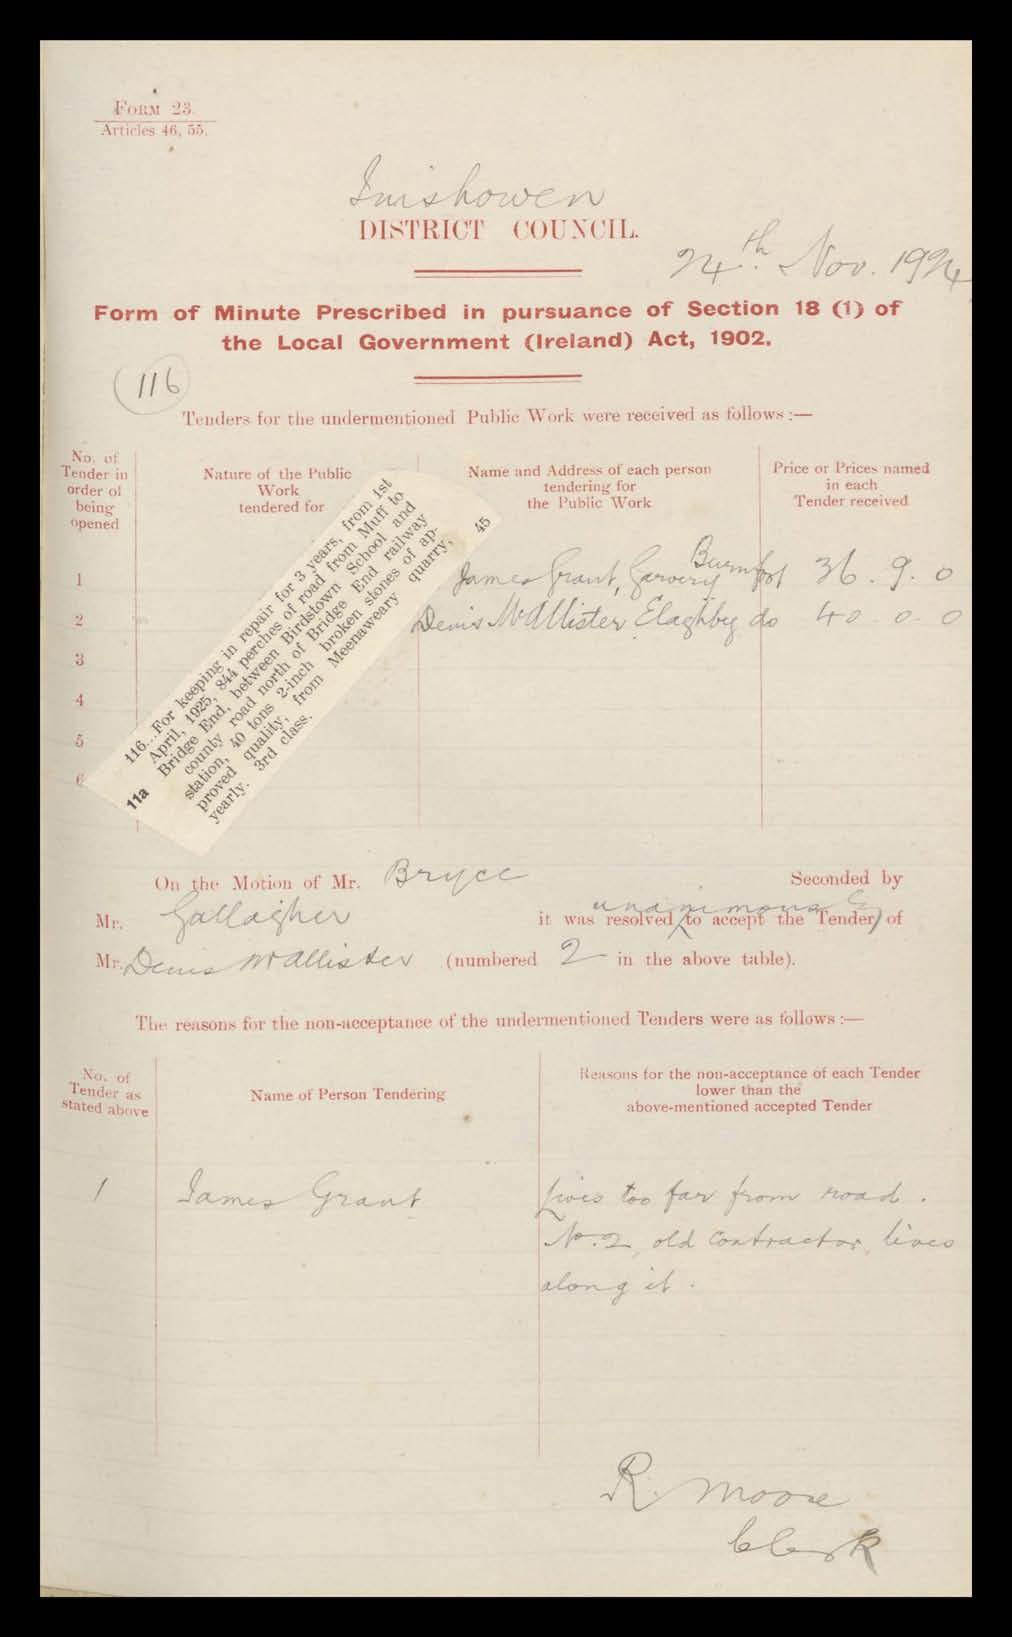 FORM 23.
Articles 46, 55.
Inishowen
DISTRICT COUNCIL.
24th Nov. 1924
Form of Minute Prescribed in pursuance of Section 18 (1) of
the Local Government (Ireland) Act, 1902.
116
Tenders for the undermentioned Public Work were received as follows :—
No. of
Tender in
order of
being
opened
Nature of the Public
Work
tendered for
Name and Address of each person
tendering for
the Public Work
Price or Prices named
in each
Tender received
116...For keeping in repair for 3 years, from 1st
April, 1925, 844 perches of road from Muff to
Bridge End, between Birdstown School and
county road north of Bridge End railway
station, 40 tons 2-inch broken stones of ap-
proved quality, from Meenaweary quarry,
yearly. 3rd class.
11a
45
1 James Grant, Garvery Burnfoot 36. 9. 0
2 Denis McAllister Elaghbeg do 40. 0. 0
3
4
5
6
On the Motion of Mr. Bryce Seconded by
unanimously
Mr. Gallagher it was resolved to accept the Tender of
Mr. Denis McAllister (numbered 2 in the above table).
The reasons for the non-acceptance of the undermentioned Tenders were as follows :—
No. of
Tender as
stated above
Name of Person Tendering
Reasons for the non-acceptance of each Tender
lower than the
above-mentioned accepted Tender
1 James Grant Lives too far from road.
No. 2, old contractor, lives
along it.
R. Moore
Clerk